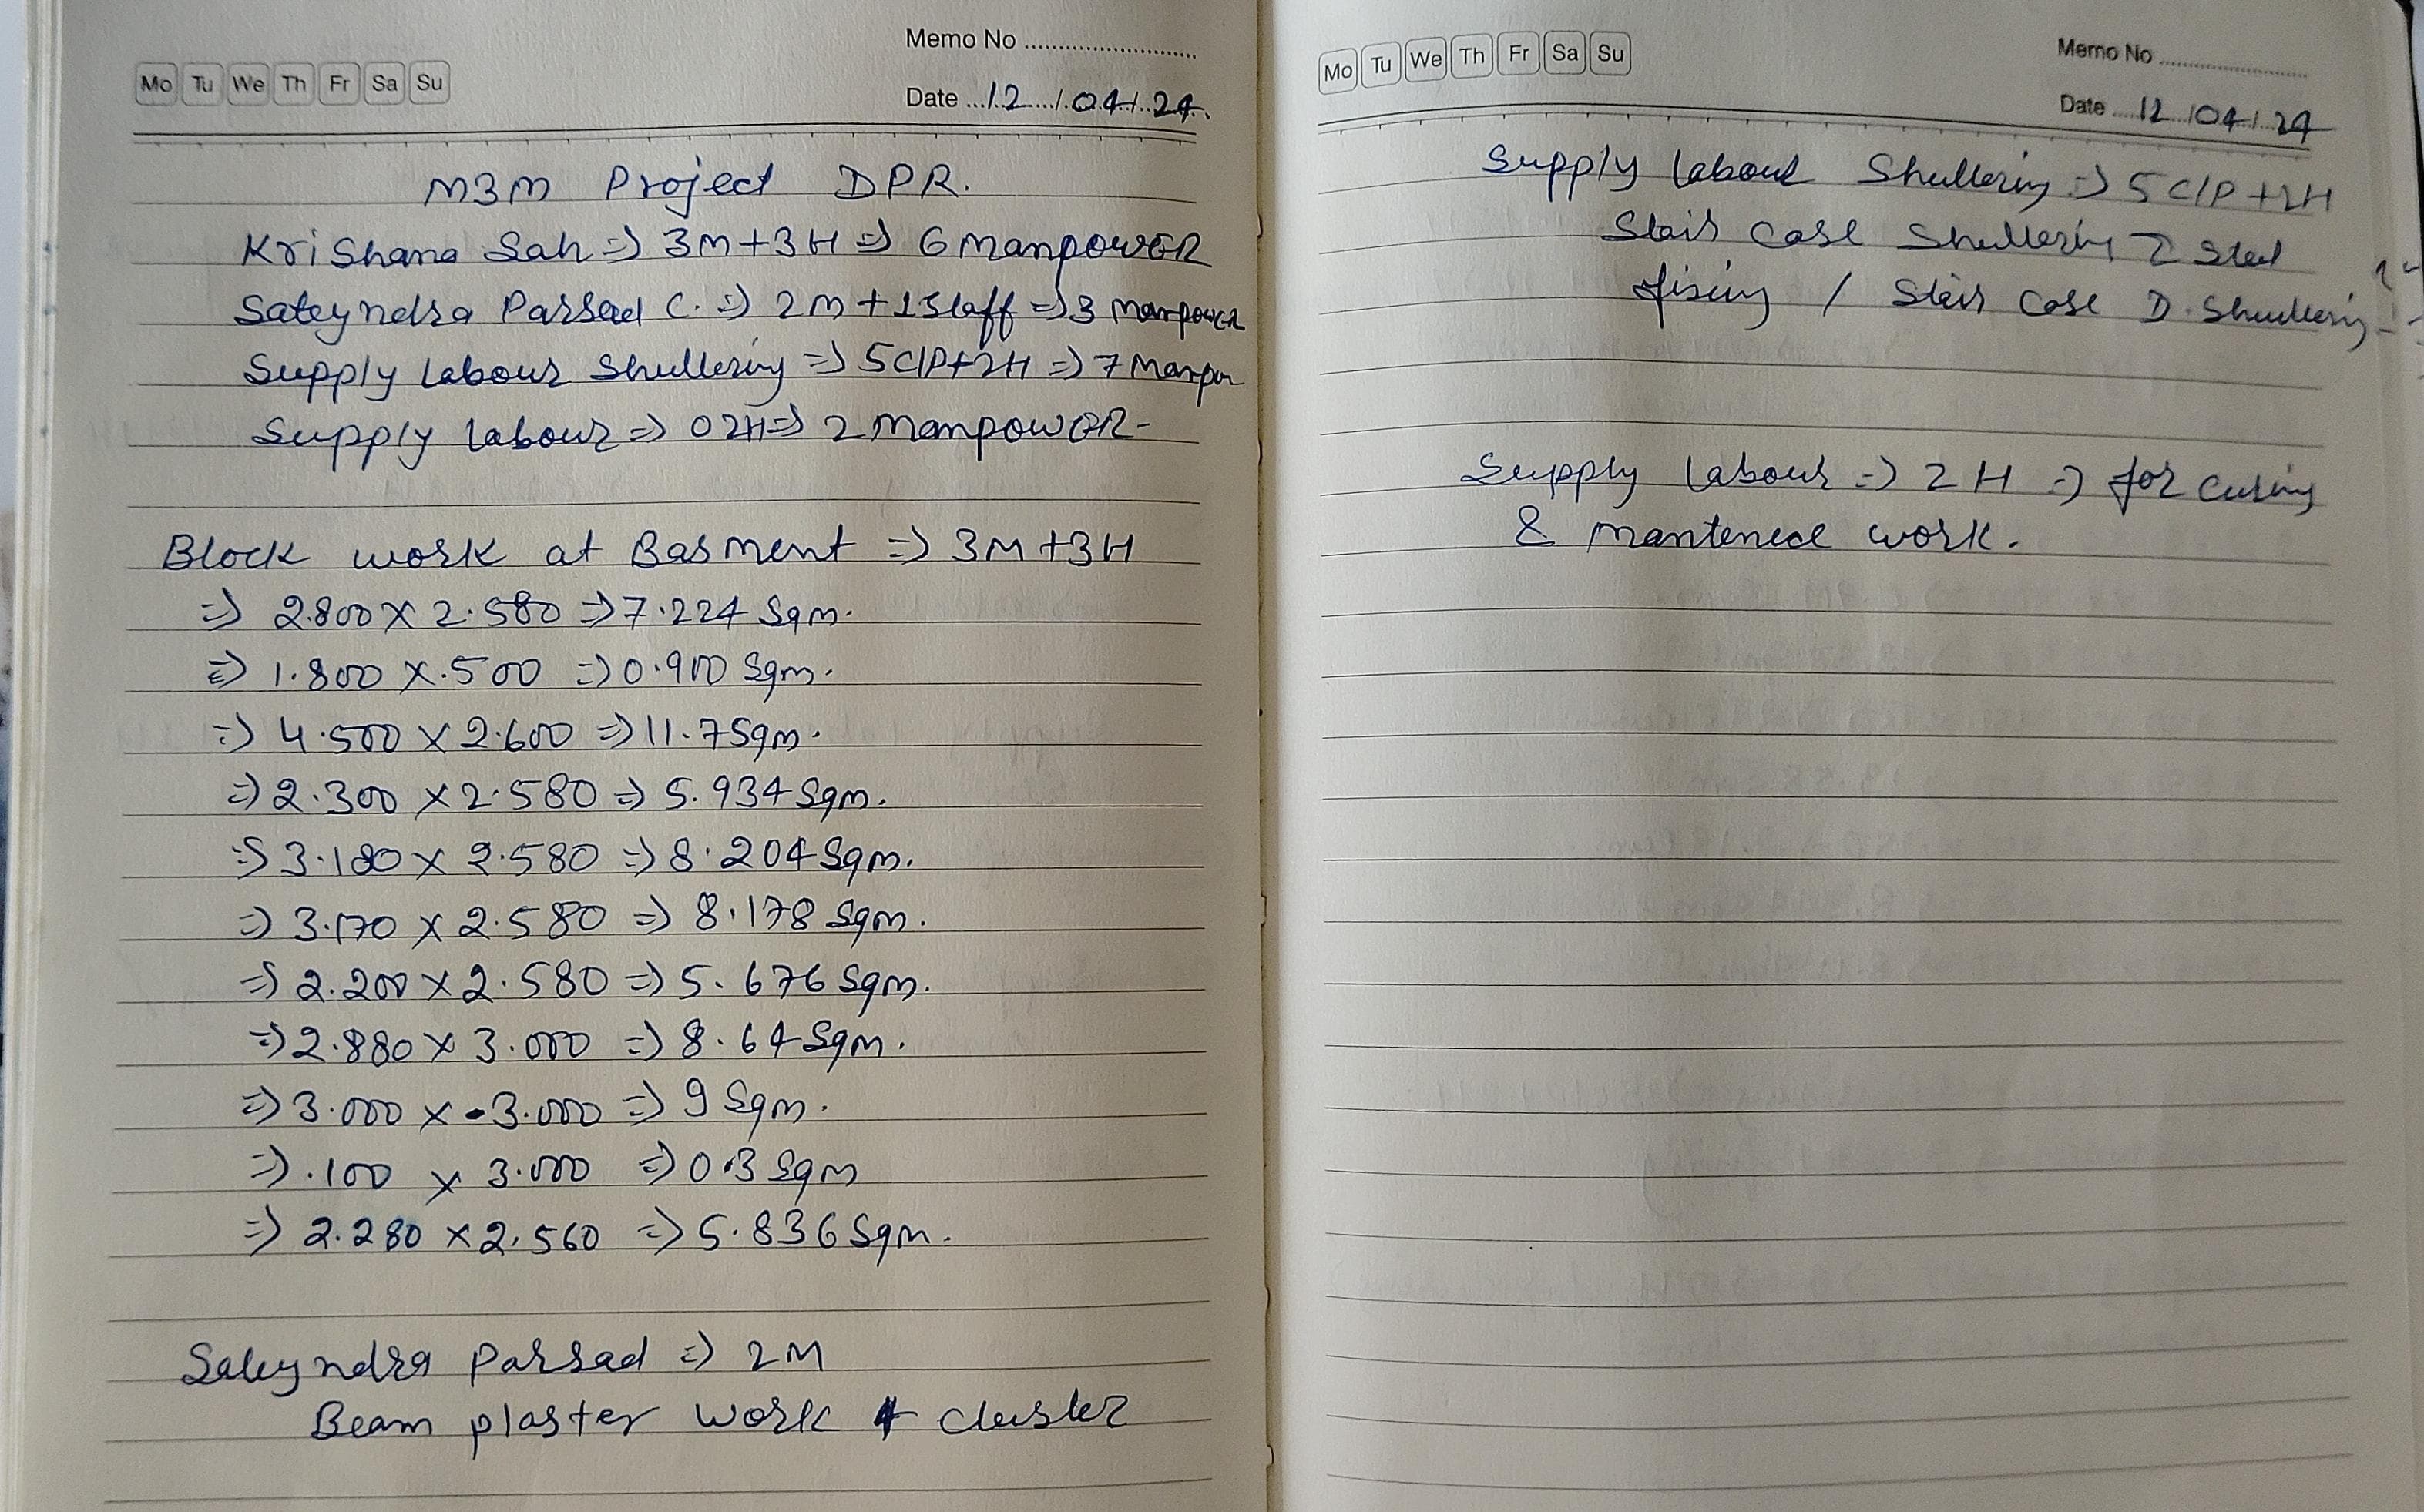 Memo No
Mo Tu We Th Fr Sa Su
Date 12/04/24
M3M Project DPR.
KriShana Sah => 3M+3H => 6 ManpowER
Sateyndra Parsad C. => 2M + 1Staff => 3 Manpower
Supply Labour Shullering => 5C/P+2H => 7 Manpor
Supply labour => 02H => 2 ManpowER-
Block work at Basment => 3M+3H
=> 2.800 x 2.580 => 7.224 Sqm.
=> 1.800 x .500 => 0.900 Sqm.
=> 4.500 x 2.600 => 11.7 Sqm.
=> 2.300 x 2.580 => 5.934 Sqm.
=> 3.180 x 2.580 => 8.204 Sqm.
=> 3.170 x 2.580 => 8.178 Sqm.
=> 2.200 x 2.580 => 5.676 Sqm.
=> 2.880 x 3.000 => 8.64 Sqm.
=> 3.000 x 3.000 => 9 Sqm.
=> .100 x 3.000 => 0.3 Sqm
=> 2.280 x 2.560 => 5.836 Sqm.
Sateyndra Parsad => 2M
Beam plaster work 4 cluster
Memo No
Mo Tu We Th Fr Sa Su
Date 12/04/24
Supply labour Shullering => 5 C/P + 2H
Stair case Shullering & Steel
fixing / Stair Case D. Shullering
Supply labour => 2 H => for Curing
& mantenece work.